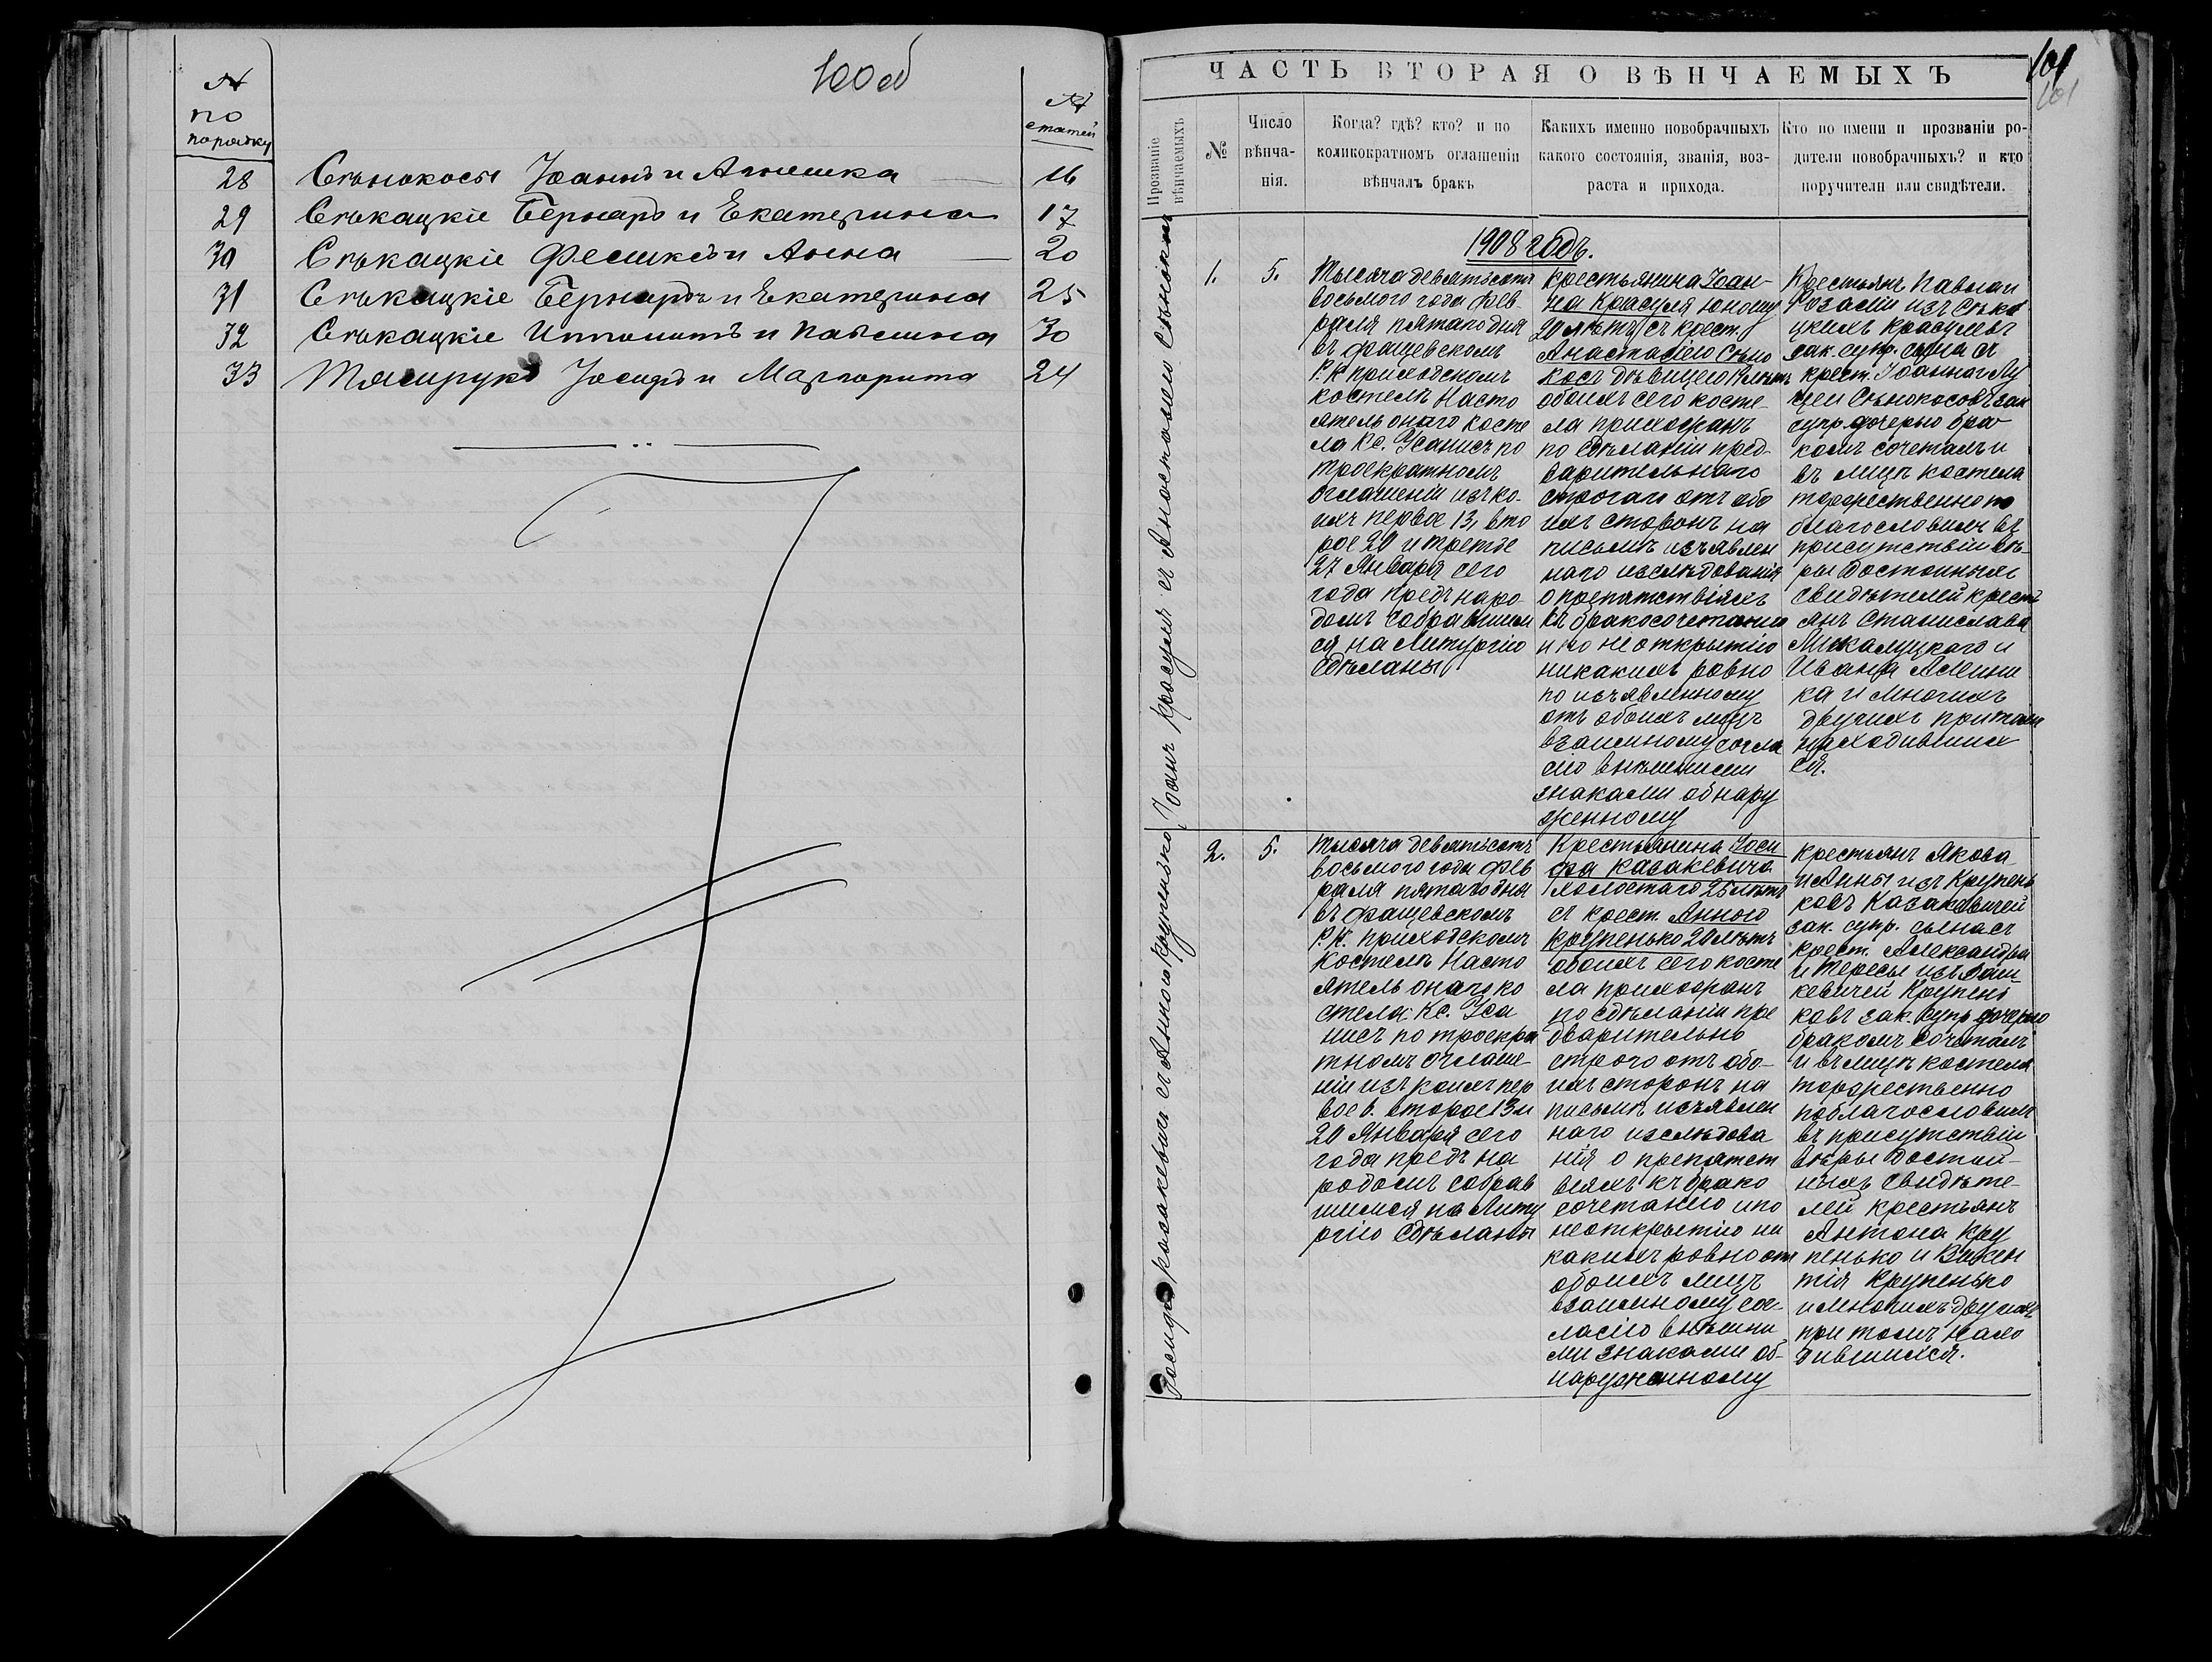 100об
№
по
порядку
№
статей
28 Сѣнокосы Іоаннъ и Агнешка — 16
29 Сѣкацкіе Бернардъ и Екатерина 17
30 Сѣкацкіе Феликсъ и Анна — 20
31 Сѣкацкіе Бернардъ и Екатерина 25
32 Сѣкацкіе Ипполитъ и Павлина 30
33 Іосифъ и Маргарита 24
101
101
ЧАСТЬ ВТОРАЯ О ВѢНЧАЕМЫХЪ
Прозваніе
вѣнчаемыхъ
№
Число
вѣнча-
нія.
Когда? гдѣ? кто? и по
коликократномъ оглашеніи
вѣнчалъ бракъ
Какихъ именно новобрачныхъ
какого состоянія, званія, воз-
раста и прихода.
Кто по имени и прозваніи ро-
дители новобрачныхъ? и кто
поручители или свидѣтели.
1908 годъ.
Іоанъ Красуля съ Анастасіею Сѣнокосъ
1.
5.
Тысяча девятьсотъ
восьмого года Фев
раля пятаго дня
въ Фащевскомъ
Р. К. приходскомъ
костелѣ Насто
ятель онаго косте
ла Кс. по
троекратномъ
оглашеніи изъ ко-
ихъ первое 13, вто
рое 20 и третье
27 Января сего
года предъ наро-
домъ собравшим
ся на Литургію
сдѣланы
крестьянина Іоан-
на Красуля юношу
20 лѣтъ съ крест.
Анастасіею Сѣно
косъ дѣвицею лѣтъ
обоихъ сего косте-
ла прихожанъ
по сдѣланіи пред-
варительнаго
строгаго отъ обо
ихъ сторонъ на
письмѣ изъявлен
наго изслѣдованія
о препятствіяхъ
къ бракосочетанію
и по неоткрытію
никакихъ ровно
по изъявленному
отъ обоихъ лицъ
взаимному согла
сію внѣшними
знаками обнару
женному
Крестьянъ Павла и
Розаліи изъ Сѣка
цкихъ Красулевъ
зак. супр. сына съ
крест. Іоанна и Лу
ціи Сѣнокосовъ зак
супр. дочерью бра-
комъ сочеталъ и
въ лицѣ костела
торжественно по
благословилъ въ
присутствіи вѣ-
ры достойныхъ
свидѣтелей кресть
янъ Станислава
и
Ивана
ка и многихъ
другихъ притомъ
находившихъ
ся.
Іосифъ Казакевичъ съ Анною Крупенько
2.
5.
Тысяча девятьсотъ
восьмого года Фев
раля пятаго дня
въ Фащевскомъ
Р. К. приходскомъ
Костелѣ Насто
ятель онаго ко
стела Кс.
по троекра
тномъ оглаше-
ніи изъ коихъ пер
вое 6. второе 13 и
20 Января сего
года предъ на
родомъ собрав
шимся на Литу
ргію сдѣланы
Крестьянина Іоси
фа Казакевича
холостаго 25 лѣтъ
съ крест. Анною
Крупенько 20 лѣтъ
обоихъ сего косте
ла прихожанъ
по сдѣланіи пре
дварительно
строго отъ обо-
ихъ сторонъ на
письмѣ изъявлен
наго изслѣдова
нія о препятст
віяхъ къ брако
сочетанію и по
неоткрытію ни
какихъ ровно отъ
обоихъ лицъ
взаимному сог-
ласію внѣшни
ми знаками об-
наруженному
крестьянъ Якова
и Анны изъ Крупень
ковъ Казакевичей
зак. супр. сына съ
крест. Александра
и Тересы изъ
кевичей Крупень
ковъ зак. супр. дочерью
бракомъ сочеталъ
и въ лицѣ костела
торжественно
поблагословилъ
въ присутствіи
вѣры достой-
ныхъ свидѣте-
лей крестьянъ
Антона Кру
пенько и Викен
тія Крупенько
и многихъ другихъ
при томъ нахо
дившихся.